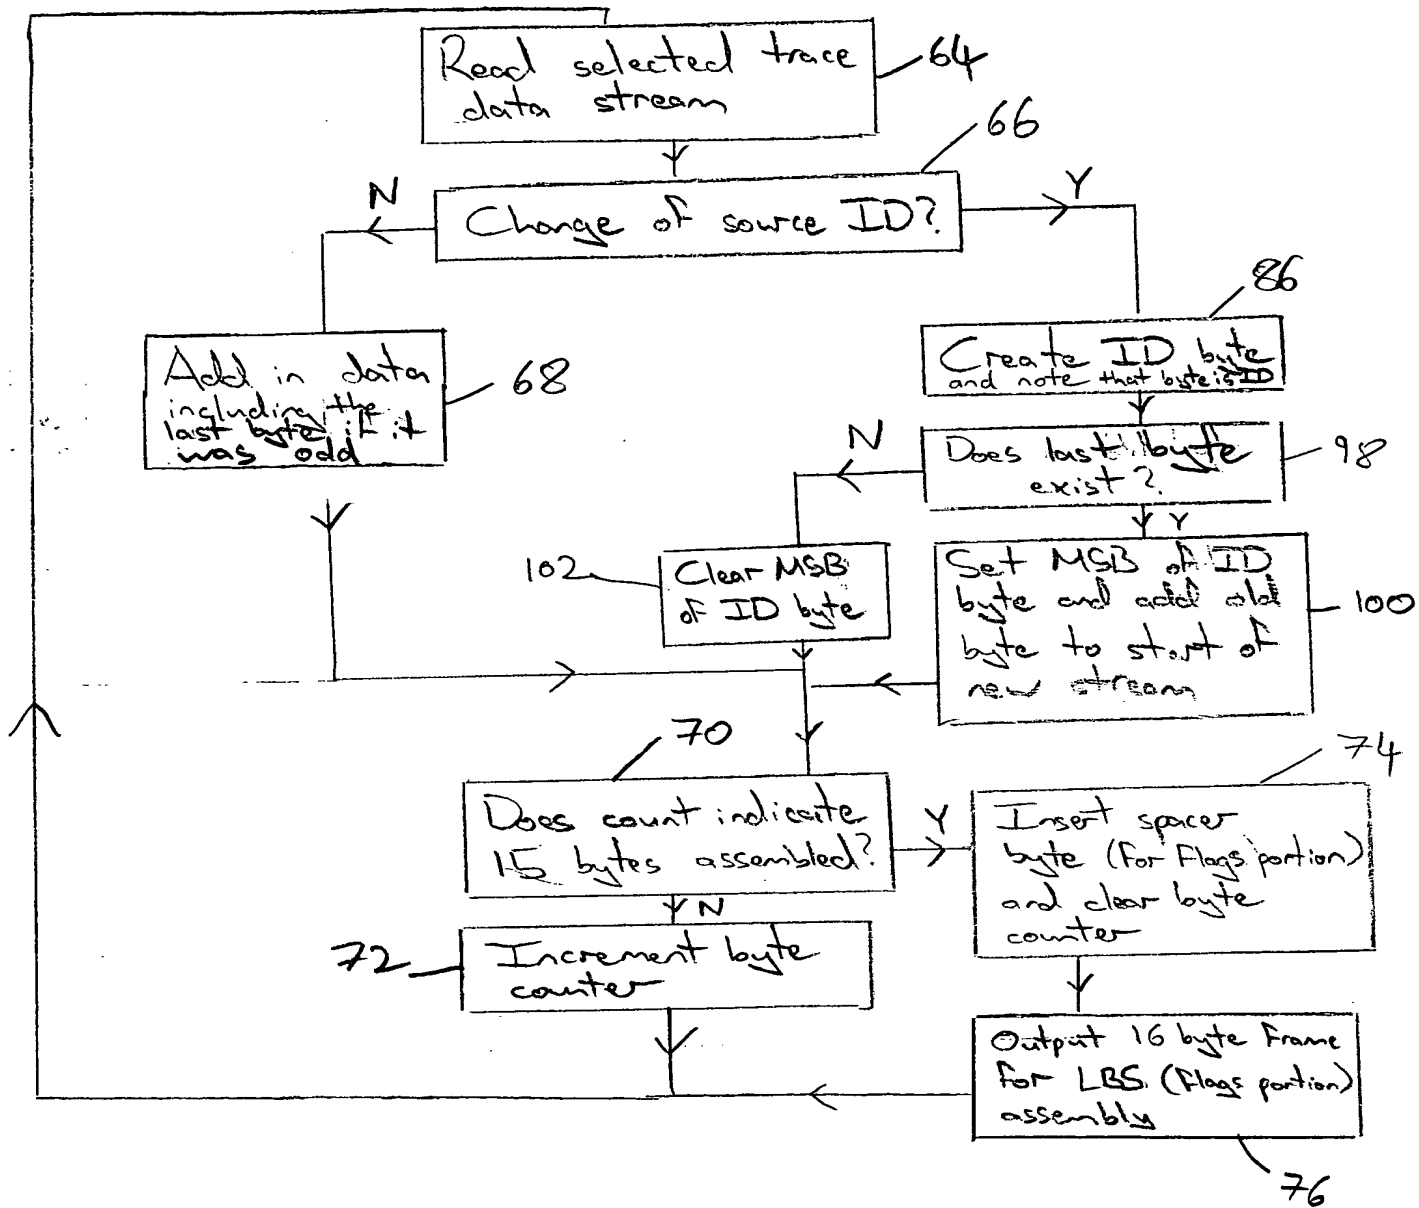 Read selected trace
data stream
64
66
N
Change of source ID?
Y
86
Create ID byte
and note that byte is ID
Add in data
including the
last byte if it
was odd
68
N
Does last byte
exist?
98
Y
102
Clear MSB
of ID byte
Set MSB of ID
byte and add old
byte to start of
new stream
100
70
Does count indicate
15 bytes assembled?
Y
74
Insert spacer
byte (for flags portion)
and clear byte
counter
N
72
Increment byte
counter
Output 16 byte frame
for LBS (flags portion)
assembly
76